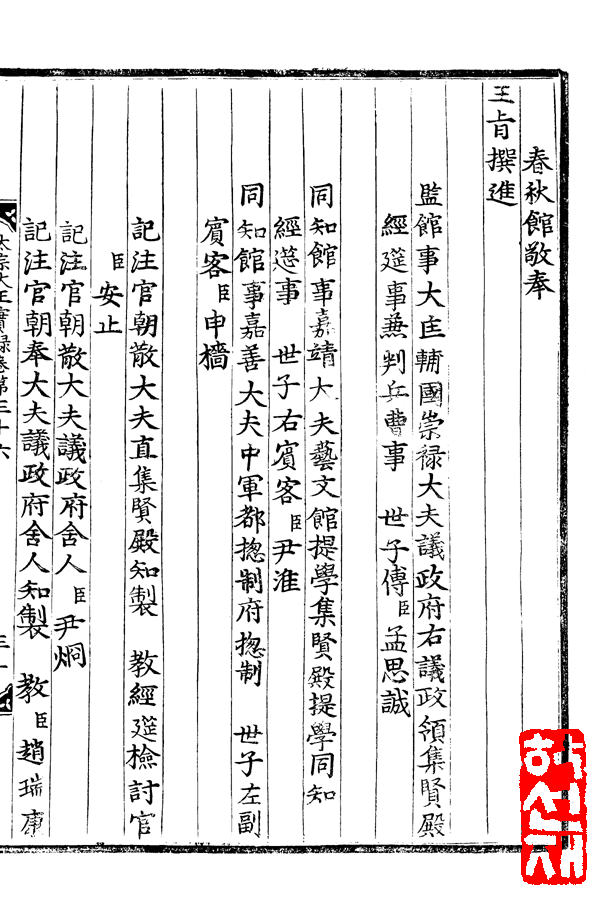 春秋館敬奉
王旨撰進
監館事大匡輔國崇禄大夫議政府右議政領集賢殿
經筵事兼判兵曹事 世子傅臣孟思誠
同知館事嘉靖大夫藝文館提學集賢殿提學同知
經筵事 世子右賓客臣尹淮
同知館事嘉善大夫中軍都揔制府揔制 世子左副
賓客臣申檣
記注官朝散大夫直集賢殿知製 教經筵檢討官
臣安止
記注官朝散大夫議政府舍人臣尹烱
記注官朝奉大夫議政府舍人知製 教臣趙瑞康
太宗大王實録卷第三十六
허선재